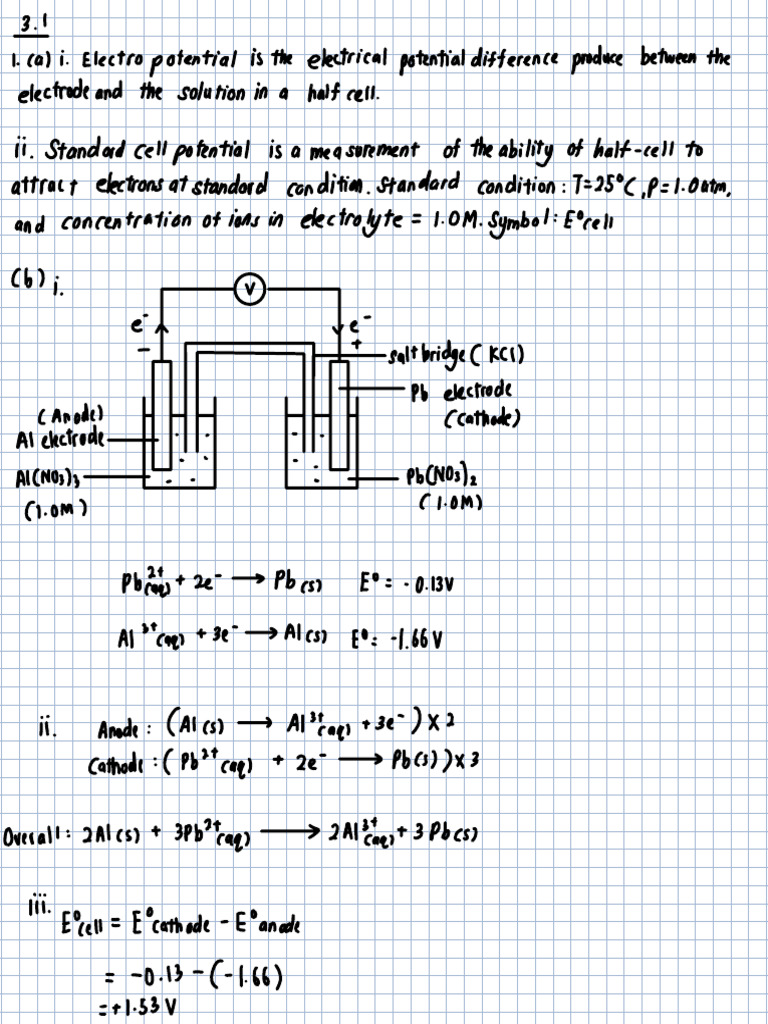 3.1
1. (a) i. Electro potential is the electrical potential difference produce between the
electrode and the solution in a half cell.
ii. Standard cell potential is a measurement of the ability of half-cell to
attract electrons at standard condition. Standard condition : T=25°C, P=1.0 atm,
and concentration of ions in electrolyte = 1.0M. Symbol: E°cell
(b) i.
V
e⁻ e⁻
− +
salt bridge ( KCl)
Pb electrode
(Cathode)
(Anode)
Al electrode
Al(NO₃)₃
(1.0M)
Pb(NO₃)₂
(1.0M)
Pb²⁺(aq) + 2e⁻ → Pb(s) E° = -0.13V
Al³⁺(aq) + 3e⁻ → Al(s) E°: -1.66 V
ii. Anode : (Al(s) → Al³⁺(aq) + 3e⁻) × 2
Cathode : ( Pb²⁺(aq) + 2e⁻ → Pb(s)) × 3
Overall : 2Al(s) + 3Pb²⁺(aq) → 2Al³⁺(aq) + 3Pb(s)
iii.
E°cell = E°cathode - E°anode
= -0.13 - (-1.66)
= +1.53 V